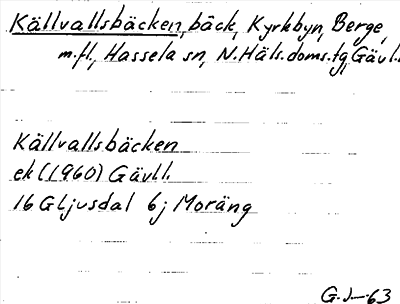 Källvallsbäcken, bäck, Kyrkbyn, Berge,
m.fl., Hassela sn, N. Häls. doms.tg, Gävl.
Källvallsbäcken
ek (1960) Gävll.
16 G Ljusdal 6j Moräng
G. J-63